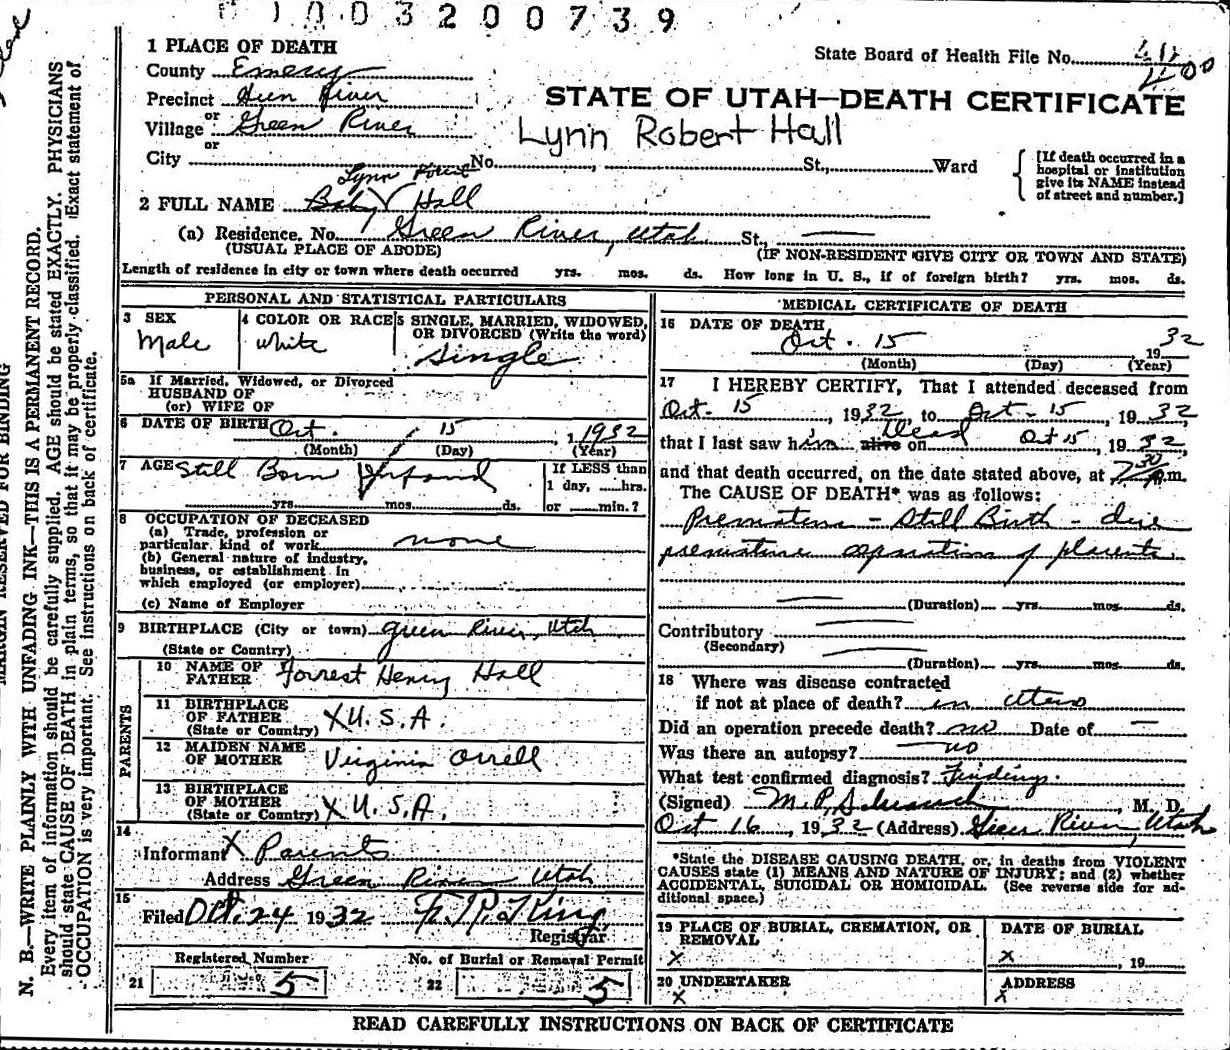 1003200739
1 PLACE OF DEATH
State Board of Health File No.
County Emery
Precinct Green River
or
Village Green River
or
City No. St., Ward
STATE OF UTAH—DEATH CERTIFICATE
Lynn Robert Hall
[If death occurred in a
hospital or institution
give its NAME instead
of street and number.]
Lynn
2 FULL NAME Baby Hall
(a) Residence, No. Green River, Utah St.,
(USUAL PLACE OF ABODE) (IF NON-RESIDENT GIVE CITY OR TOWN AND STATE)
Length of residence in city or town where death occurred yrs. mos. ds. How long in U. S., if of foreign birth? yrs. mos. ds.
PERSONAL AND STATISTICAL PARTICULARS
3 SEX
Male
4 COLOR OR RACE
White
5 SINGLE, MARRIED, WIDOWED,
OR DIVORCED (Write the word)
Single
5a If Married, Widowed, or Divorced
HUSBAND OF
(or) WIFE OF
6 DATE OF BIRTH Oct. 15, 1932
(Month) (Day) (Year)
7 AGE Still Born
yrs. mos. ds.
If LESS than
1 day, hrs.
or min.?
8 OCCUPATION OF DECEASED
(a) Trade, profession or
particular kind of work none
(b) General nature of Industry,
business, or establishment in
which employed (or employer)
(c) Name of Employer
9 BIRTHPLACE (City or town) Green River, Utah
(State or Country)
PARENTS
10 NAME OF
FATHER Forrest Henry Hall
11 BIRTHPLACE
OF FATHER X U.S.A.
(State or Country)
12 MAIDEN NAME
OF MOTHER Virginia Orrell
13 BIRTHPLACE
OF MOTHER
(State or Country) X U.S.A.
14
Informant X Parents
Address Green River Utah
15
Filed Oct. 24 1932 F. R. King
Registrar
Registered Number No. of Burial or Removal Permit
21 5 22 5
MEDICAL CERTIFICATE OF DEATH
16 DATE OF DEATH
Oct. 15 1932
(Month) (Day) (Year)
17 I HEREBY CERTIFY, That I attended deceased from
Oct - 15, 1932 to Oct - 15, 1932
that I last saw him alive on Dead Oct 15, 1932,
and that death occurred, on the date stated above, at 7 30 P.m.
The CAUSE OF DEATH* was as follows:
Premature - Still Birth - due
premature separation of placenta
(Duration) yrs. mos. ds.
Contributory
(Secondary)
(Duration) yrs. mos. ds.
18 Where was disease contracted
if not at place of death? in utero
Did an operation precede death? no Date of —
Was there an autopsy? no
What test confirmed diagnosis? Findings.
(Signed) M. P., M. D.
Oct 16, 1932 (Address) Green River, Utah
*State the DISEASE CAUSING DEATH, or, in deaths from VIOLENT
CAUSES state (1) MEANS AND NATURE OF INJURY; and (2) whether
ACCIDENTAL, SUICIDAL OR HOMICIDAL. (See reverse side for ad-
ditional space.)
19 PLACE OF BURIAL, CREMATION, OR
REMOVAL
X
DATE OF BURIAL
X, 19
20 UNDERTAKER
X
ADDRESS
X
READ CAREFULLY INSTRUCTIONS ON BACK OF CERTIFICATE
MARGIN RESERVED FOR BINDING
N. B.—WRITE PLAINLY WITH UNFADING INK—THIS IS A PERMANENT RECORD.
Every item of information should be carefully supplied. AGE should be stated EXACTLY. PHYSICIANS
should state CAUSE OF DEATH in plain terms, so that it may be properly classified. Exact statement of
OCCUPATION is very important. See instructions on back of certificate.